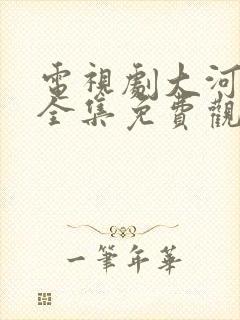 電視劇大河
全集免費觀
一筆年華